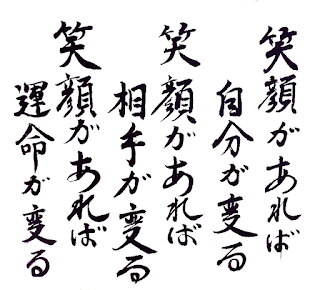 笑顔があれば
自分が変る
笑顔があれば
相手が変る
笑顔があれば
運命が変る